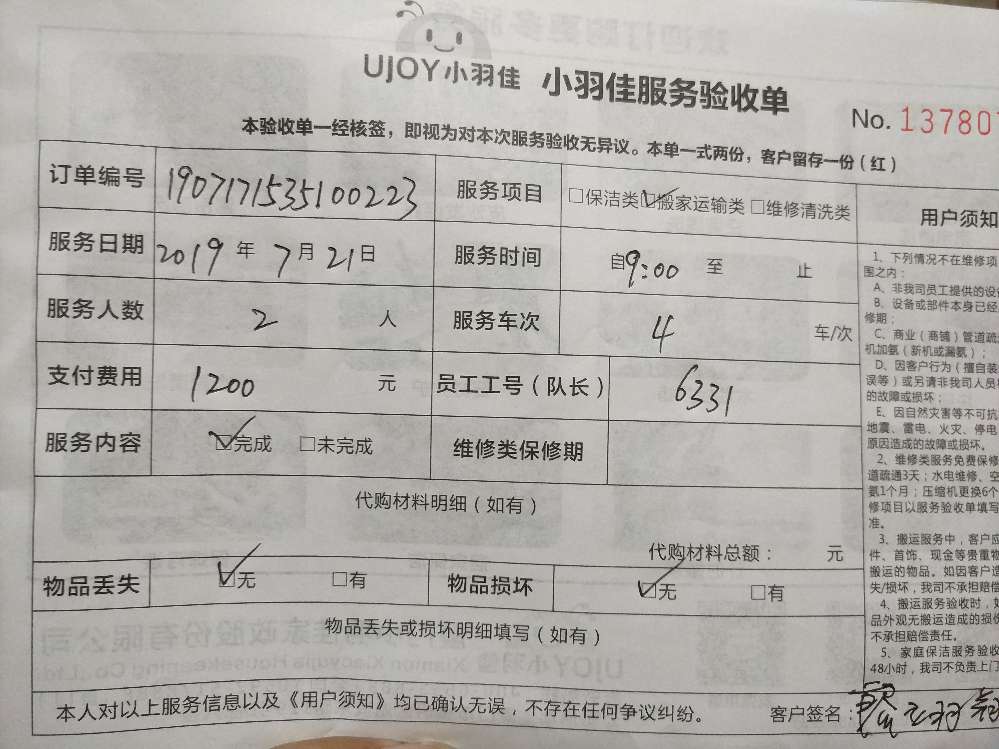 UJOY小羽佳 小羽佳服务验收单
No. 137807
本验收单一经核签，即视为对本次服务验收无异议。本单一式两份，客户留存一份（红）
订单编号 1907171535100223 服务项目 □保洁类 ☑搬家运输类 □维修清洗类
服务日期 2019 年 7 月 21 日 服务时间 自 9:00 至 止
服务人数 2 人 服务车次 4 车/次
支付费用 1200 元 员工工号（队长） 6331
服务内容 ☑完成 □未完成 维修类保修期
代购材料明细（如有）
代购材料总额： 元
物品丢失 ☑无 □有 物品损坏 ☑无 □有
物品丢失或损坏明细填写（如有）
本人对以上服务信息以及《用户须知》均已确认无误，不存在任何争议纠纷。 客户签名：
用户须知
1、下列情况不在维修项
围之内：
A、非我司员工提供的设
B、设备或部件本身已经
修期；
C、商业（商铺）管道疏
机加氨（新机或漏氨）；
D、因客户行为（擅自装
误等）或另请非我司人员
的故障或损坏；
E、因自然灾害等不可抗
地震、雷电、火灾、停电
原因造成的故障或损坏。
2、维修类服务免费保修
道疏通3天；水电维修、空
氨1个月；压缩机更换6个
修项目以服务验收单填写
准。
3、搬运服务中，客户应
件、首饰、现金等贵重物
搬运的物品。如因客户造
失/损坏，我司不承担赔偿
4、搬运服务验收时，如
品外观无搬运造成的损伤
不承担赔偿责任。
5、家庭保洁服务验收
48小时，我司不负责上门